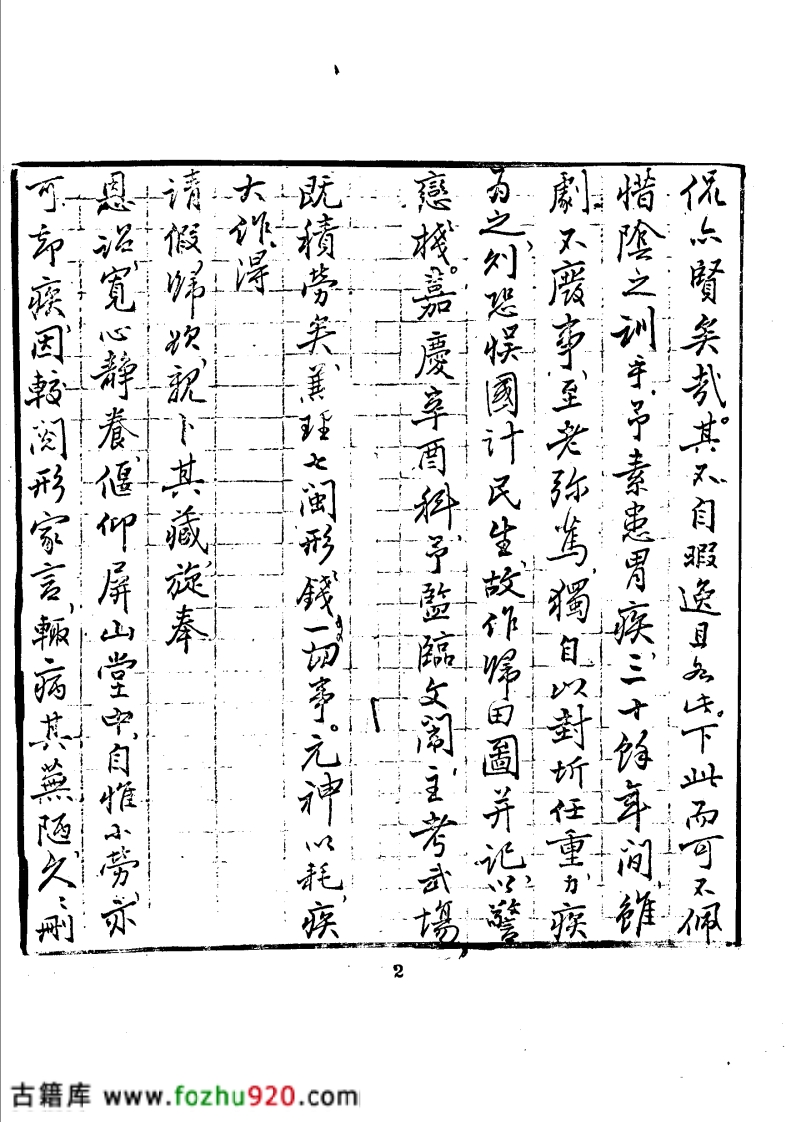 侃亦賢矣哉。其不自暇逸且如此。下此而可不佩
惜陰之訓乎、予素患胃疾、三十餘年間、雖
劇不廢事、至老弥篤、獨自以封圻任重、力疾
為之、則恐悞國計民生、故作歸田圖并記、以警
戀棧。嘉慶辛酉科、予監臨文闈、主考武場、
既積勞矣、兼理七閩形錢一切事。元神以耗、疾
大作、得
請假歸、欲親卜其藏、旋奉
恩詔、寬心靜養、偃仰屏山堂中、自惟小勞、亦
可却疾、因較閱形家言、輒病其蕪陋、久、刪
2
古籍库 www.fozhu920.com